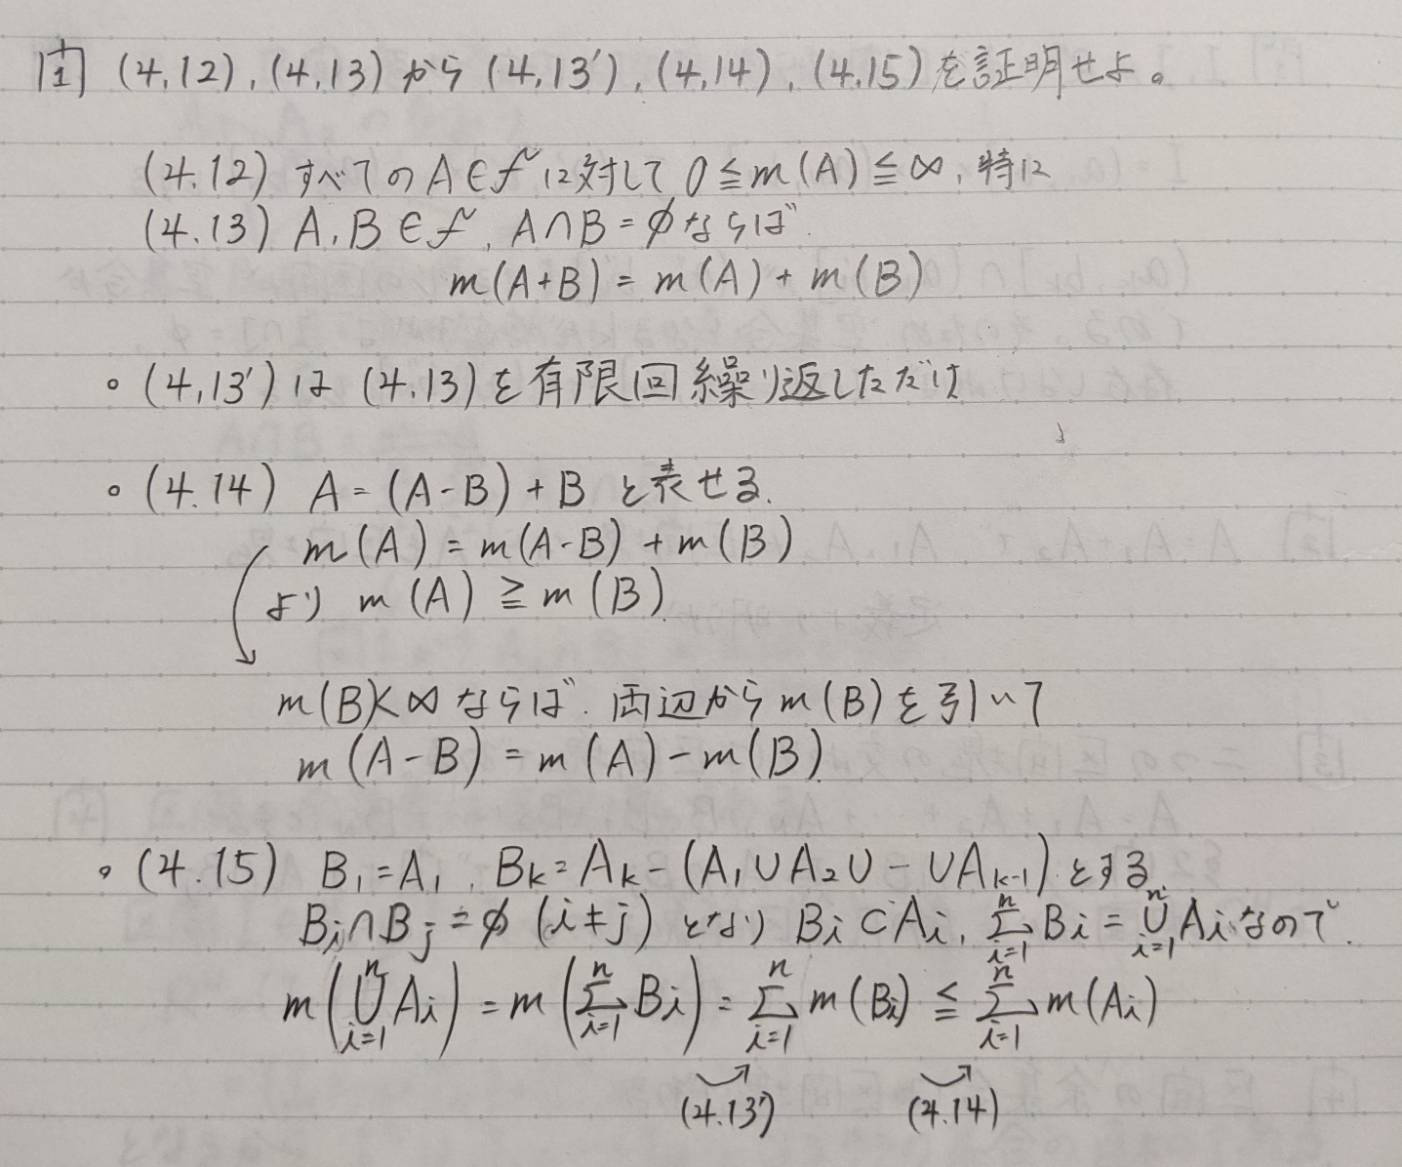 問1 (4,12), (4,13) から (4,13'), (4,14), (4.15) を証明せよ。
(4.12) すべての A∈f に対して 0≦m(A)≦∞, 特に
(4.13) A,B∈f, A∩B=φならば
m(A+B)=m(A)+m(B)
。(4,13')は(4.13)を有限回繰り返しただけ
。(4.14) A=(A-B)+B と表せる.
m(A)=m(A-B)+m(B)
より m(A)≧m(B)
m(B)<∞ならば. 両辺からm(B)を引いて
m(A-B)=m(A)-m(B)
。(4.15) B₁=A₁, Bk=Ak-(A₁∪A₂∪-∪Ak-1)とする
Bi∩Bj=φ (i≠j) となり Bi⊂Ai, Σ[i=1→n] Bi=∪[i=1→n] Aiなので.
m(∪[i=1→n] Ai)=m(Σ[i=1→n] Bi)=Σ[i=1→n] m(Bi)≦Σ[i=1→n] m(Ai)
(4.13') (4.14)